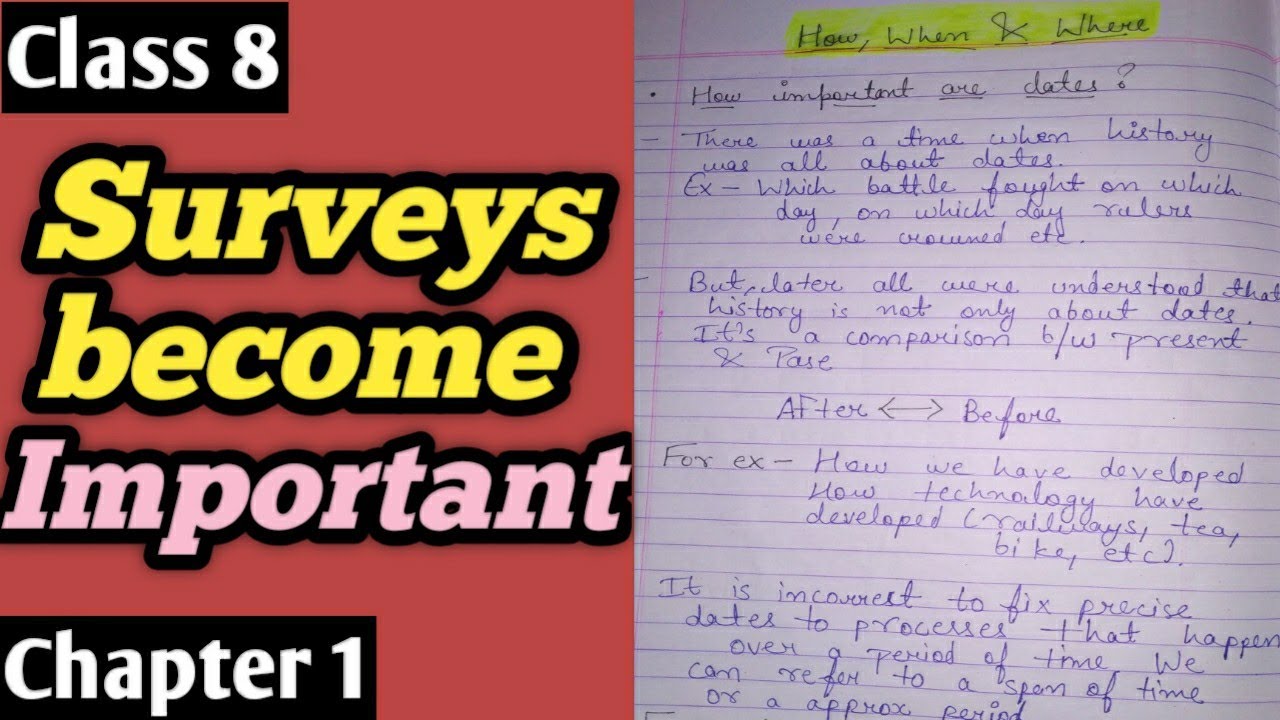 Class 8
Surveys
become
Important
Chapter 1
How, When & Where
• How important are dates?
- There was a time when history
was all about dates.
Ex - Which battle fought on which
day, on which day rulers
were crowned etc.
- But, later all were understood that
history is not only about dates.
It's a comparison b/w present
& Pase
After <-> Before
For ex - How we have developed
How technology have
developed (railways, tea,
bike, etc).
It is incorrest to fix precise
dates to processes that happen
over a period of time. We
can refer to a span of time
or a approx period